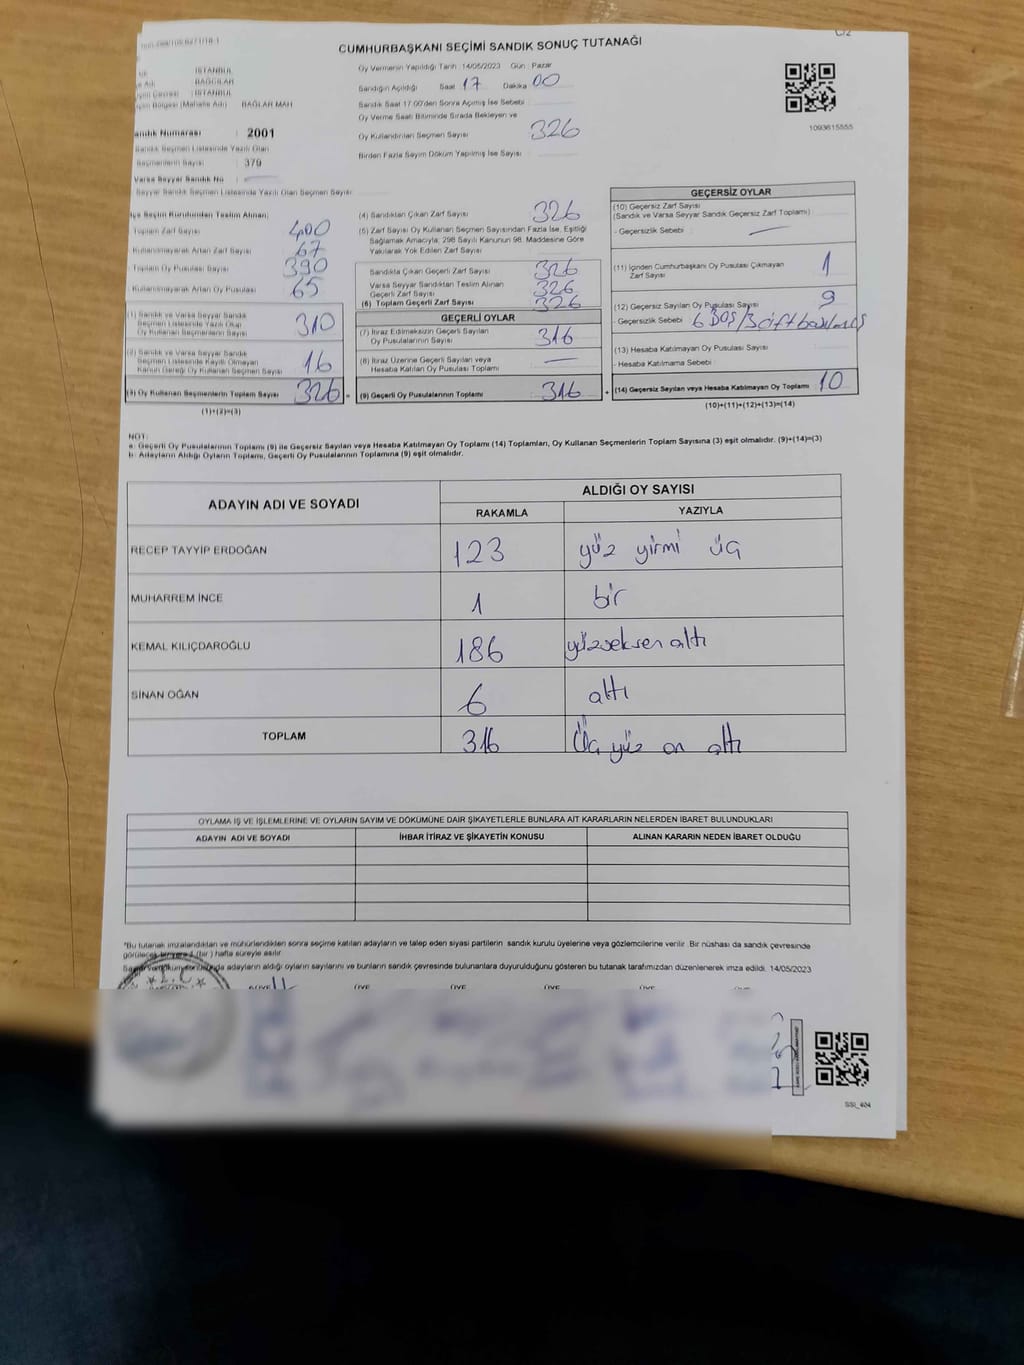 CUMHURBAŞKANI SEÇİMİ SANDIK SONUÇ TUTANAĞI
O2
İSTANBUL
BAĞCILAR
İSTANBUL
(Mahalle Adı) BAĞLAR MAH
Sandık Numarası : 2001
Sandık Seçmen Listesinde Yazılı Olan
Seçmenlerin Sayısı : 379
Varsa Seyyar Sandık No
Seyyar Sandık Seçmen Listesinde Yazılı Olan Seçmen Sayısı
Oy Vermenin Yapıldığı Tarih : 14/05/2023 Gün : Pazar
Sandığın Açıldığı Saat 17 Dakika 00
Sandık Saat 17.00'den Sonra Açılmış İse Sebebi
Oy Verme Saati Bitiminde Sırada Bekleyen ve
Oy Kullandırılan Seçmen Sayısı 326
Birden Fazla Sayım Döküm Yapılmış İse Sayısı
1093615555
İlçe Seçim Kurulundan Teslim Alınan;
Toplam Zarf Sayısı 400
Kullanılmayarak Artan Zarf Sayısı 67
Toplam Oy Pusulası Sayısı 390
Kullanılmayarak Artan Oy Pusulası 65
(1) Sandık ve Varsa Seyyar Sandık
Seçmen Listesinde Yazılı Olup
Oy Kullanan Seçmenlerin Sayısı 310
(2) Sandık ve Varsa Seyyar Sandık
Seçmen Listesinde Kayıtlı Olmayan
Kanun Gereği Oy Kullanan Seçmen Sayısı 16
(3) Oy Kullanan Seçmenlerin Toplam Sayısı 326 =
(1)+(2)=(3)
(4) Sandıktan Çıkan Zarf Sayısı 326
(5) Zarf Sayısı Oy Kullanan Seçmen Sayısından Fazla İse, Eşitliği
Sağlamak Amacıyla; 298 Sayılı Kanunun 98. Maddesine Göre
Yakılarak Yok Edilen Zarf Sayısı
Sandıkta Çıkan Geçerli Zarf Sayısı 326
Varsa Seyyar Sandıktan Teslim Alınan
Geçerli Zarf Sayısı 326
(6) Toplam Geçerli Zarf Sayısı 326
GEÇERLİ OYLAR
(7) İtiraz Edilmeksizin Geçerli Sayılan
Oy Pusulalarının Sayısı 316
(8) İtiraz Üzerine Geçerli Sayılan veya
Hesaba Katılan Oy Pusulası Toplamı —
(9) Geçerli Oy Pusulalarının Toplamı 316 +
GEÇERSİZ OYLAR
(10) Geçersiz Zarf Sayısı
(Sandık ve Varsa Seyyar Sandık Geçersiz Zarf Toplamı)
- Geçersizlik Sebebi —
(11) İçinden Cumhurbaşkanı Oy Pusulası Çıkmayan
Zarf Sayısı 1
(12) Geçersiz Sayılan Oy Pusulası Sayısı 9
- Geçersizlik Sebebi 6 BOŞ/3 çift basılmış
(13) Hesaba Katılmayan Oy Pusulası Sayısı
- Hesaba Katılmama Sebebi
(14) Geçersiz Sayılan veya Hesaba Katılmayan Oy Toplamı 10
(10)+(11)+(12)+(13)=(14)
NOT:
a- Geçerli Oy Pusulalarının Toplamı (9) ile Geçersiz Sayılan veya Hesaba Katılmayan Oy Toplamı (14) Toplamları, Oy Kullanan Seçmenlerin Toplam Sayısına (3) eşit olmalıdır. (9)+(14)=(3)
b- Adayların Aldığı Oyların Toplamı, Geçerli Oy Pusulalarının Toplamına (9) eşit olmalıdır.
ADAYIN ADI VE SOYADI
ALDIĞI OY SAYISI
RAKAMLA YAZIYLA
RECEP TAYYİP ERDOĞAN 123 yüz yirmi üç
MUHARREM İNCE 1 bir
KEMAL KILIÇDAROĞLU 186 yüzseksen altı
SİNAN OĞAN 6 altı
TOPLAM 316 Üç yüz on altı
OYLAMA İŞ VE İŞLEMLERİNE VE OYLARIN SAYIM VE DÖKÜMÜNE DAİR ŞİKAYETLERLE BUNLARA AİT KARARLARIN NELERDEN İBARET BULUNDUKLARI
ADAYIN ADI VE SOYADI İHBAR İTİRAZ VE ŞİKAYETİN KONUSU ALINAN KARARIN NEDEN İBARET OLDUĞU
*Bu tutanak imzalandıktan ve mühürlendikten sonra seçime katılan adayların ve talep eden siyasi partilerin sandık kurulu üyelerine veya gözlemcilerine verilir. Bir nüshası da sandık çevresinde
görülecek bir yere 1 (bir) hafta süreyle asılır
adayların aldığı oyların sayılarını ve bunların sandık çevresinde bulunanlara duyurulduğunu gösteren bu tutanak tarafımızdan düzenlenerek imza edildi. 14/05/2023
T.C.
ÜYE ÜYE ÜYE ÜYE ÜYE
SSI_404